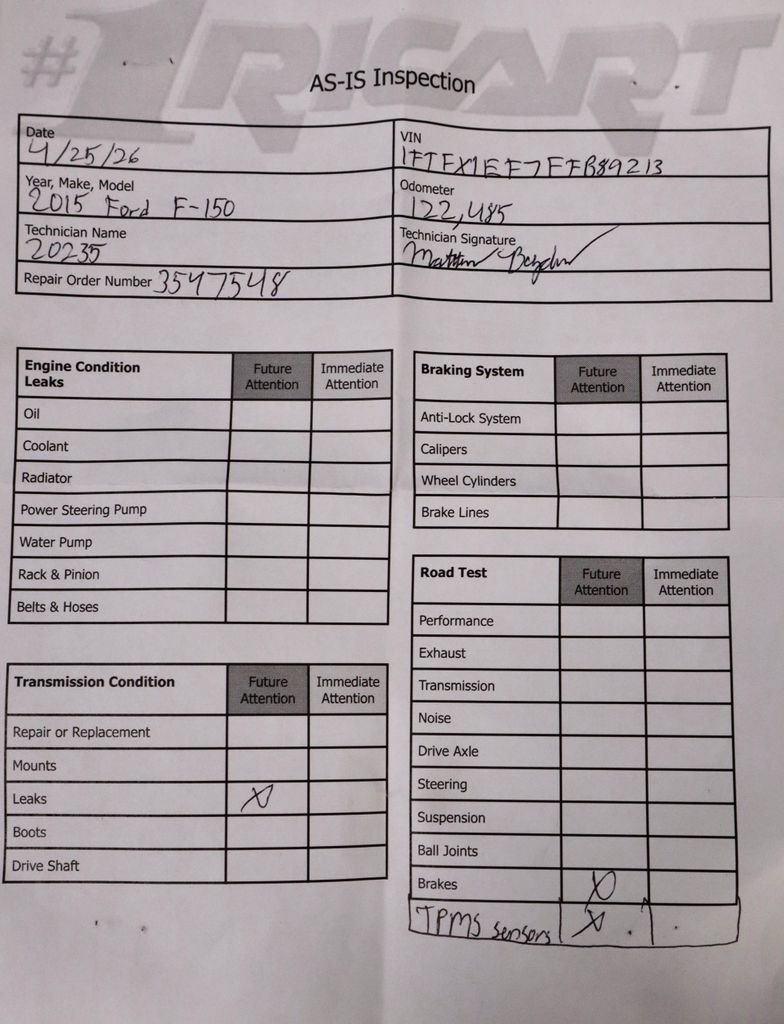 #1 RICART
AS-IS Inspection
Date
4/25/26
VIN
1FTFX1EF7FFB89213
Year, Make, Model
2015 Ford F-150
Odometer
122,485
Technician Name
20235
Technician Signature
Repair Order Number 3547548
Engine Condition Leaks Future Attention Immediate Attention
Oil
Coolant
Radiator
Power Steering Pump
Water Pump
Rack & Pinion
Belts & Hoses
Transmission Condition Future Attention Immediate Attention
Repair or Replacement
Mounts
Leaks X
Boots
Drive Shaft
Braking System Future Attention Immediate Attention
Anti-Lock System
Calipers
Wheel Cylinders
Brake Lines
Road Test Future Attention Immediate Attention
Performance
Exhaust
Transmission
Noise
Drive Axle
Steering
Suspension
Ball Joints
Brakes X
TPMS sensors X